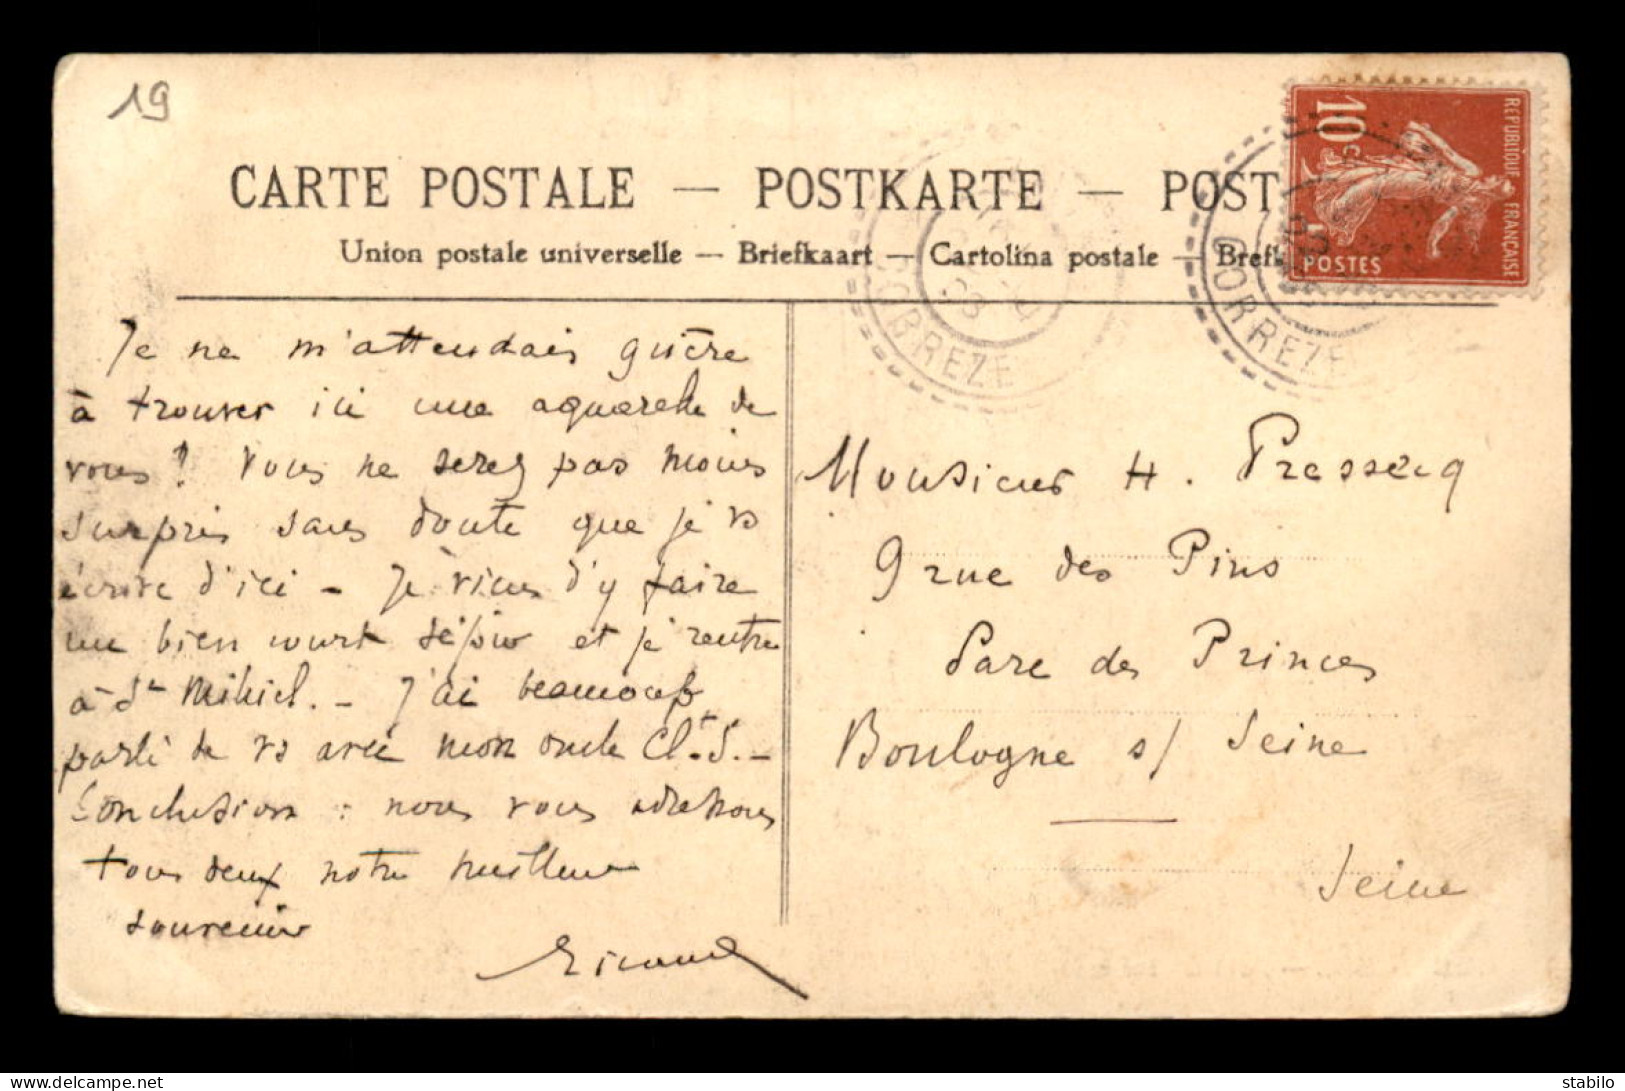 19
CARTE POSTALE — POSTKARTE — POST
Union postale universelle — Briefkaart — Cartolina postale — Brefk
10 c.
REPUBLIQUE FRANÇAISE
POSTES
CORREZE
CORREZE
Je ne m'attendais guère
à trouver ici une aquarelle de
vous ! Vous ne serez pas moins
surpris sans doute que je vs
écrive d'ici - Je viens d'y faire
un bien court séjour et je rentre
à St Mihiel. - J'ai beaucoup
parlé de vs avec mon oncle Ct. S. -
Conclusion : nous vous adressons
tous deux notre meilleur
souvenir
Monsieur H. Pressecq
9 rue des Pins
Parc des Princes
Boulogne s/ Seine
Seine
delcampe.net
stabilo